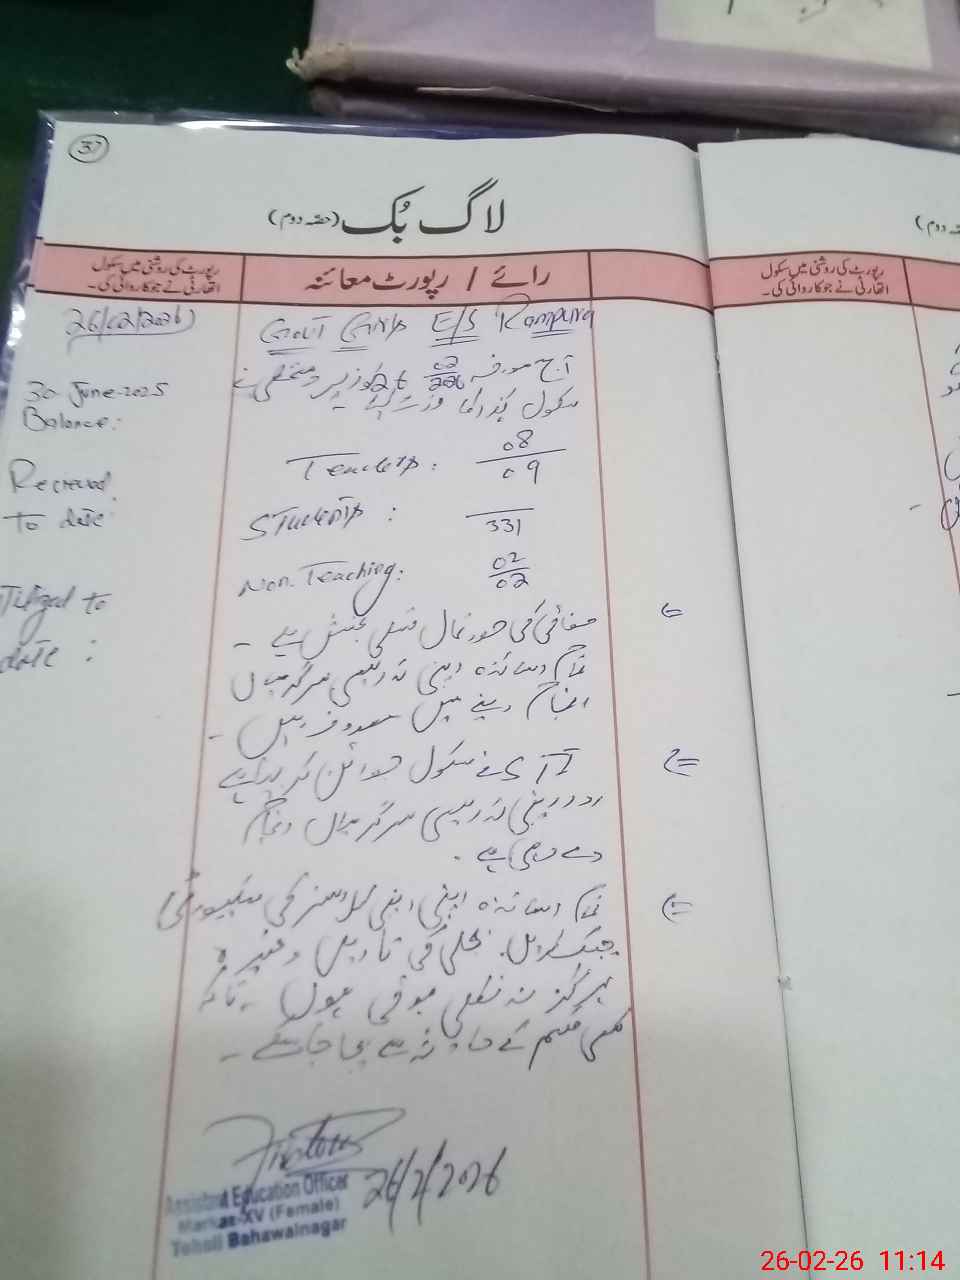 37
لاگ بُک (حصّہ دوم)
رپورٹ کی روشنی میں سکول
اتھارٹی نے جو کاروائی کی۔
رائے / رپورٹ معائنہ
26/02/2026
Govt Girls E/S Rampura
آج مورخہ 26 02/2026 کو زیر دستخطی نے
سکول ہذا کا وزٹ کیا ۔
30-June-2025
Balance:
Teachers: 08/09
Recieved
to date:
Students: 331
Non-Teaching: 02/02
صفائی کی صورتحال تسلی بخش ہے ۔
tilized to
date:
تمام اساتذہ اپنی تدریسی سرگرمیاں
انجام دینے میں مصروف ہیں ۔
STI نے سکول جوائن کر لیا ہے
اور اپنی تدریسی سرگرمیاں انجام
دے رہی ہے ۔
تمام اساتذہ اپنی اپنی کلاسز کی سکیورٹی
چیک کریں۔ بجلی کی تاریں وغیرہ
ہرگز نہ لٹکی ہوئی ہوں ۔ تاکہ
کسی قسم کے حادثہ سے بچا جا سکے ۔
26/2/2026
Assistant Education Officer
Markaz-XV (Female)
Tehsil Bahawalnagar
(حصّہ دوم)
رپورٹ کی روشنی میں سکول
اتھارٹی نے جو کاروائی کی۔
26-02-26 11:14